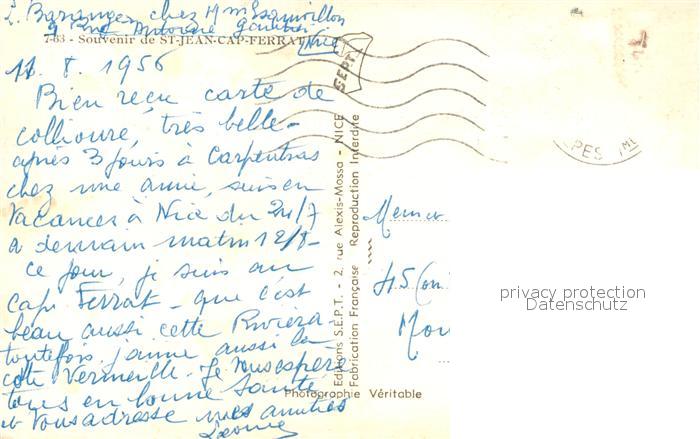 chez Mm
9 Rue Antoine Gautier
Nice
7-63 - Souvenir de ST-JEAN-CAP-FERRAT
11. 8. 1956
Bien reçu carte de
collioure, très belle -
après 3 jours à Carpentras
chez une amie, suis en
vacances à Nice du 24/7
a demain matin 12/8 -
ce jour, je suis au
cap Ferrat - que c'est
beau aussi cette Riviera
toutefois j'aime aussi la
côte Vermeille. Je vous espère
tous en bonne santé
et vous adresse mes amitiés
Editions S.E.P.T. - 2, rue Alexis-Mossa - NICE
Fabrication Française Reproduction Interdite
Photographie Véritable
SEPT
PES
45
privacy protection
Datenschutz